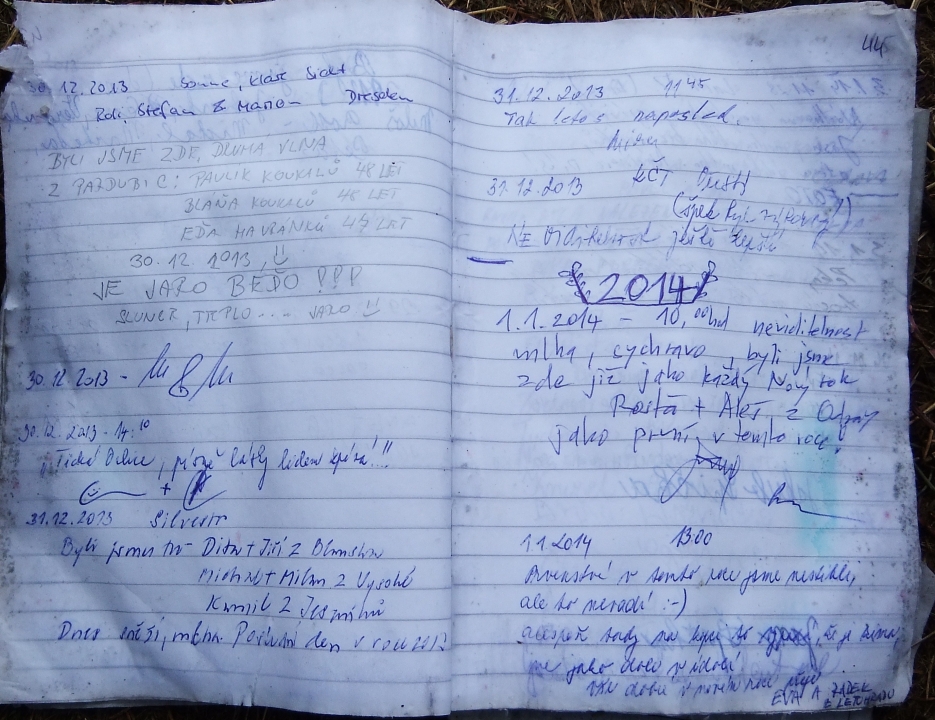 30.12.2013 Sonne, klare Sicht
Roli, Stefan & Manon Dresden
BYLI JSME ZDE, DRUHÁ VLNA
Z PARDUBIC: PAVLÍK KOUKILŮ 48 LET
BLÁŇA KOUKILŮ 48 LET
EĎA HAVRÁNKŮ 47 LET
30.12 2013,
JE JARO BĚĎO !!!
SLUNCE, TEPLO.... JARO
30.12 2013 -
30.12.2013 - 14:10
"Tichá Orlice, písně látky lidem zpívá!!"
+
31.12.2013 Silvestr
Byli jsme tu Dita + Jiří z Blanska
Michal + Milan z Vysoké
Kamil z Jeseníku
Dnes sněží, mlha. Poslední den v roce 2013
44
31.12.2013 11 45
Tak letos naposled.
31.12.2013 KČT
NE
ještě lepší
2014
1.1.2014 - 10,00 hod neviditelnost
mlha, sychravo, byli jsme
zde již jako každý Nový rok
Rosťa + Aleš z Odry
jako první v tomto roce.
1.1.2014 13:00
Prvenství v tomto roce jsme nestihli,
ale to nevadí! :-)
alespoň tady na kopci to, že je zima,
jako
Vše dobré v novém roce přejí
EVA A RADEK
Z LETOHRADU